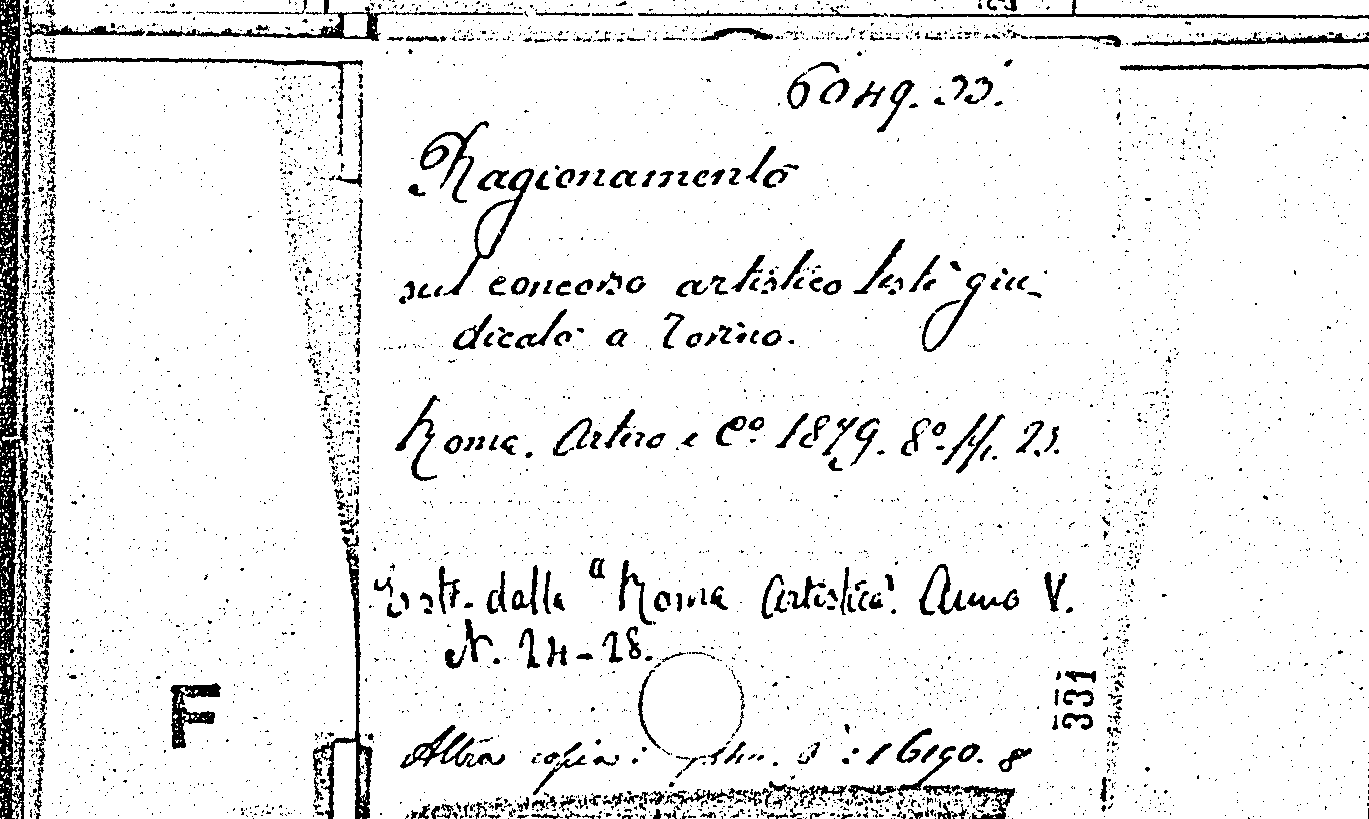 Ragionamento
sul concorso artistico testè giu-
dicato a Torino.
Roma. Artero e Cº. 1879. 8º. pp. 23.
Estr. dalla "Roma Artistica". Anno V.
N. 24-28.
F
331
Altra copia: : 16190. 8